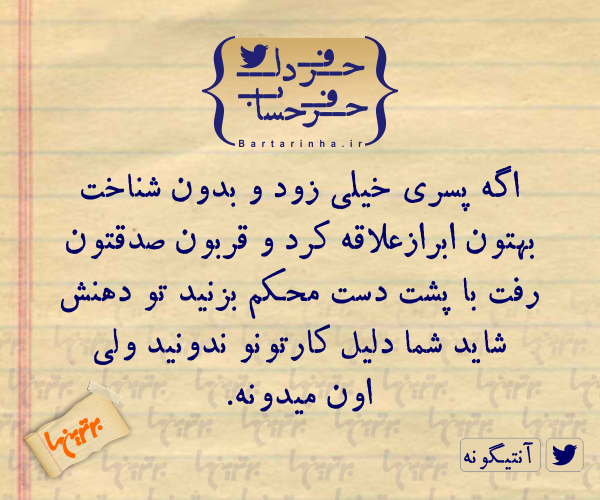 حرف دل
حرف حساب
Bartarinha.ir
اگه پسری خیلی زود و بدون شناخت
بهتون ابرازعلاقه کرد و قربون صدقتون
رفت با پشت دست محکم بزنید تو دهنش
شاید شما دلیل کارتونو ندونید ولی
اون میدونه.
برترین‌ها
آنتیگونه